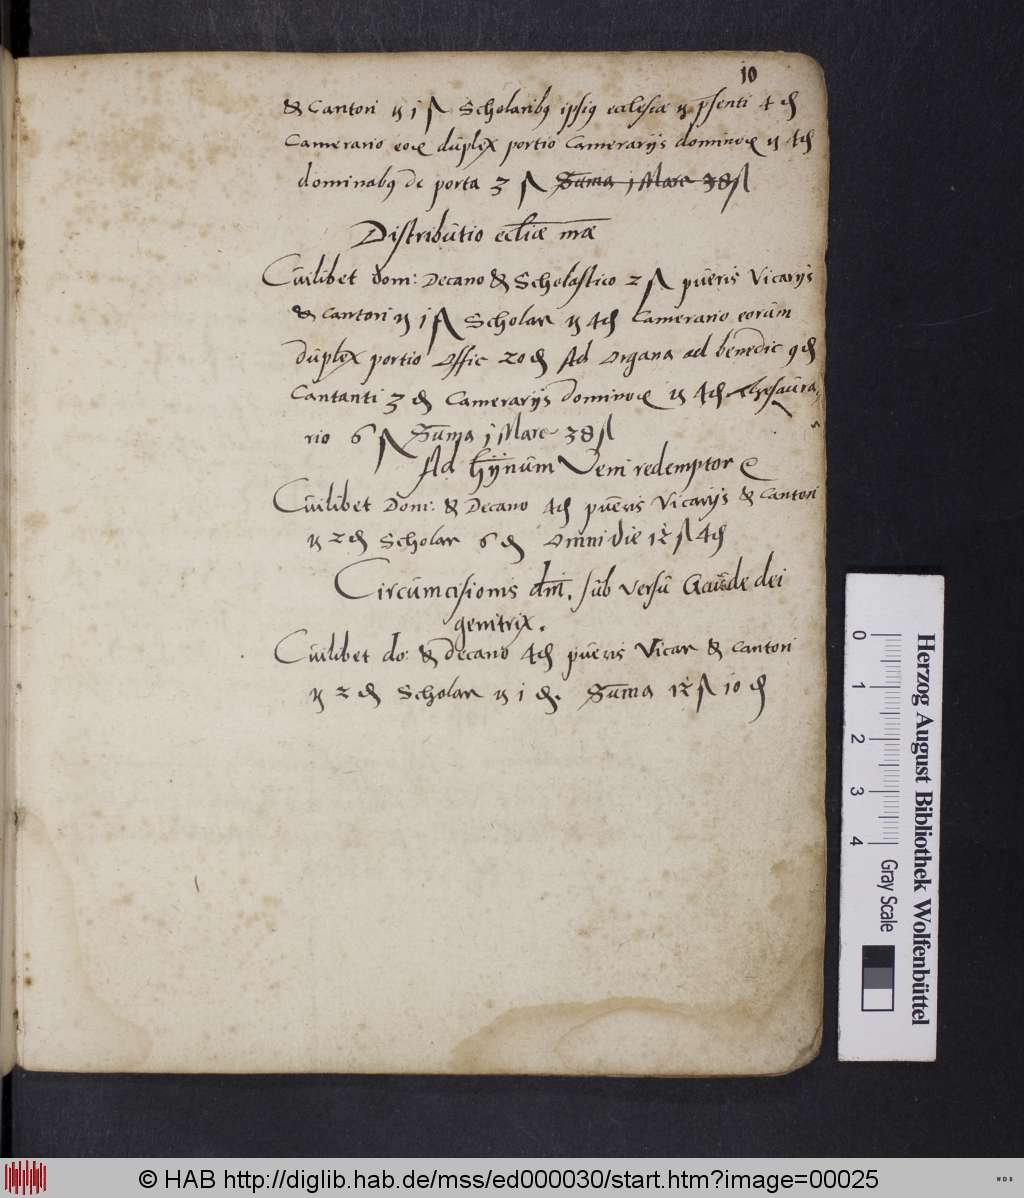 10
& Cantori ɣ 1 ß Scholarib9 ipsi9 ecclesiæ ɣ p̄senti 4 ₰
Camerario eoꝝ duplex portio Camerarijs dominoꝝ ɣ 4₰
dominab9 de porta 3 ß Sum̄a j Marc 38ß
Distributio eccl̄iæ mræ
Cuilibet dom: Decano & Scholastico 2 ß pueris Vicarijs
& Cantori ɣ 1 ß Scholar ɣ 4₰ Camerario eorum
duplex portio Offic 20₰ Ad Organa ad benedic 9₰
Cantanti 3 ₰ Camerarijs dominoꝝ ɣ 4₰ Thesaura-
rio 6 ß Sum̄a j Marc 38ß
Ad hym̄num Veni redemptor
Cuilibet Dom: & Decano 4₰ pueris Vicarijs & Cantori
ɣ 2₰ Scholar 6 ₰ Omni die 12 ß 4₰
Circumcisionis dnī. sub versu Gaude dei
genitrix.
Cuilibet do: & Decano 4₰ pueris Vicar & Cantori
ɣ 2 ₰ Scholar ɣ 1 ₰. Sum̄a 12 ß 10 ₰
0 1 2 3 4
Gray Scale
Herzog August Bibliothek Wolfenbüttel
© HAB http://diglib.hab.de/mss/ed000030/start.htm?image=00025